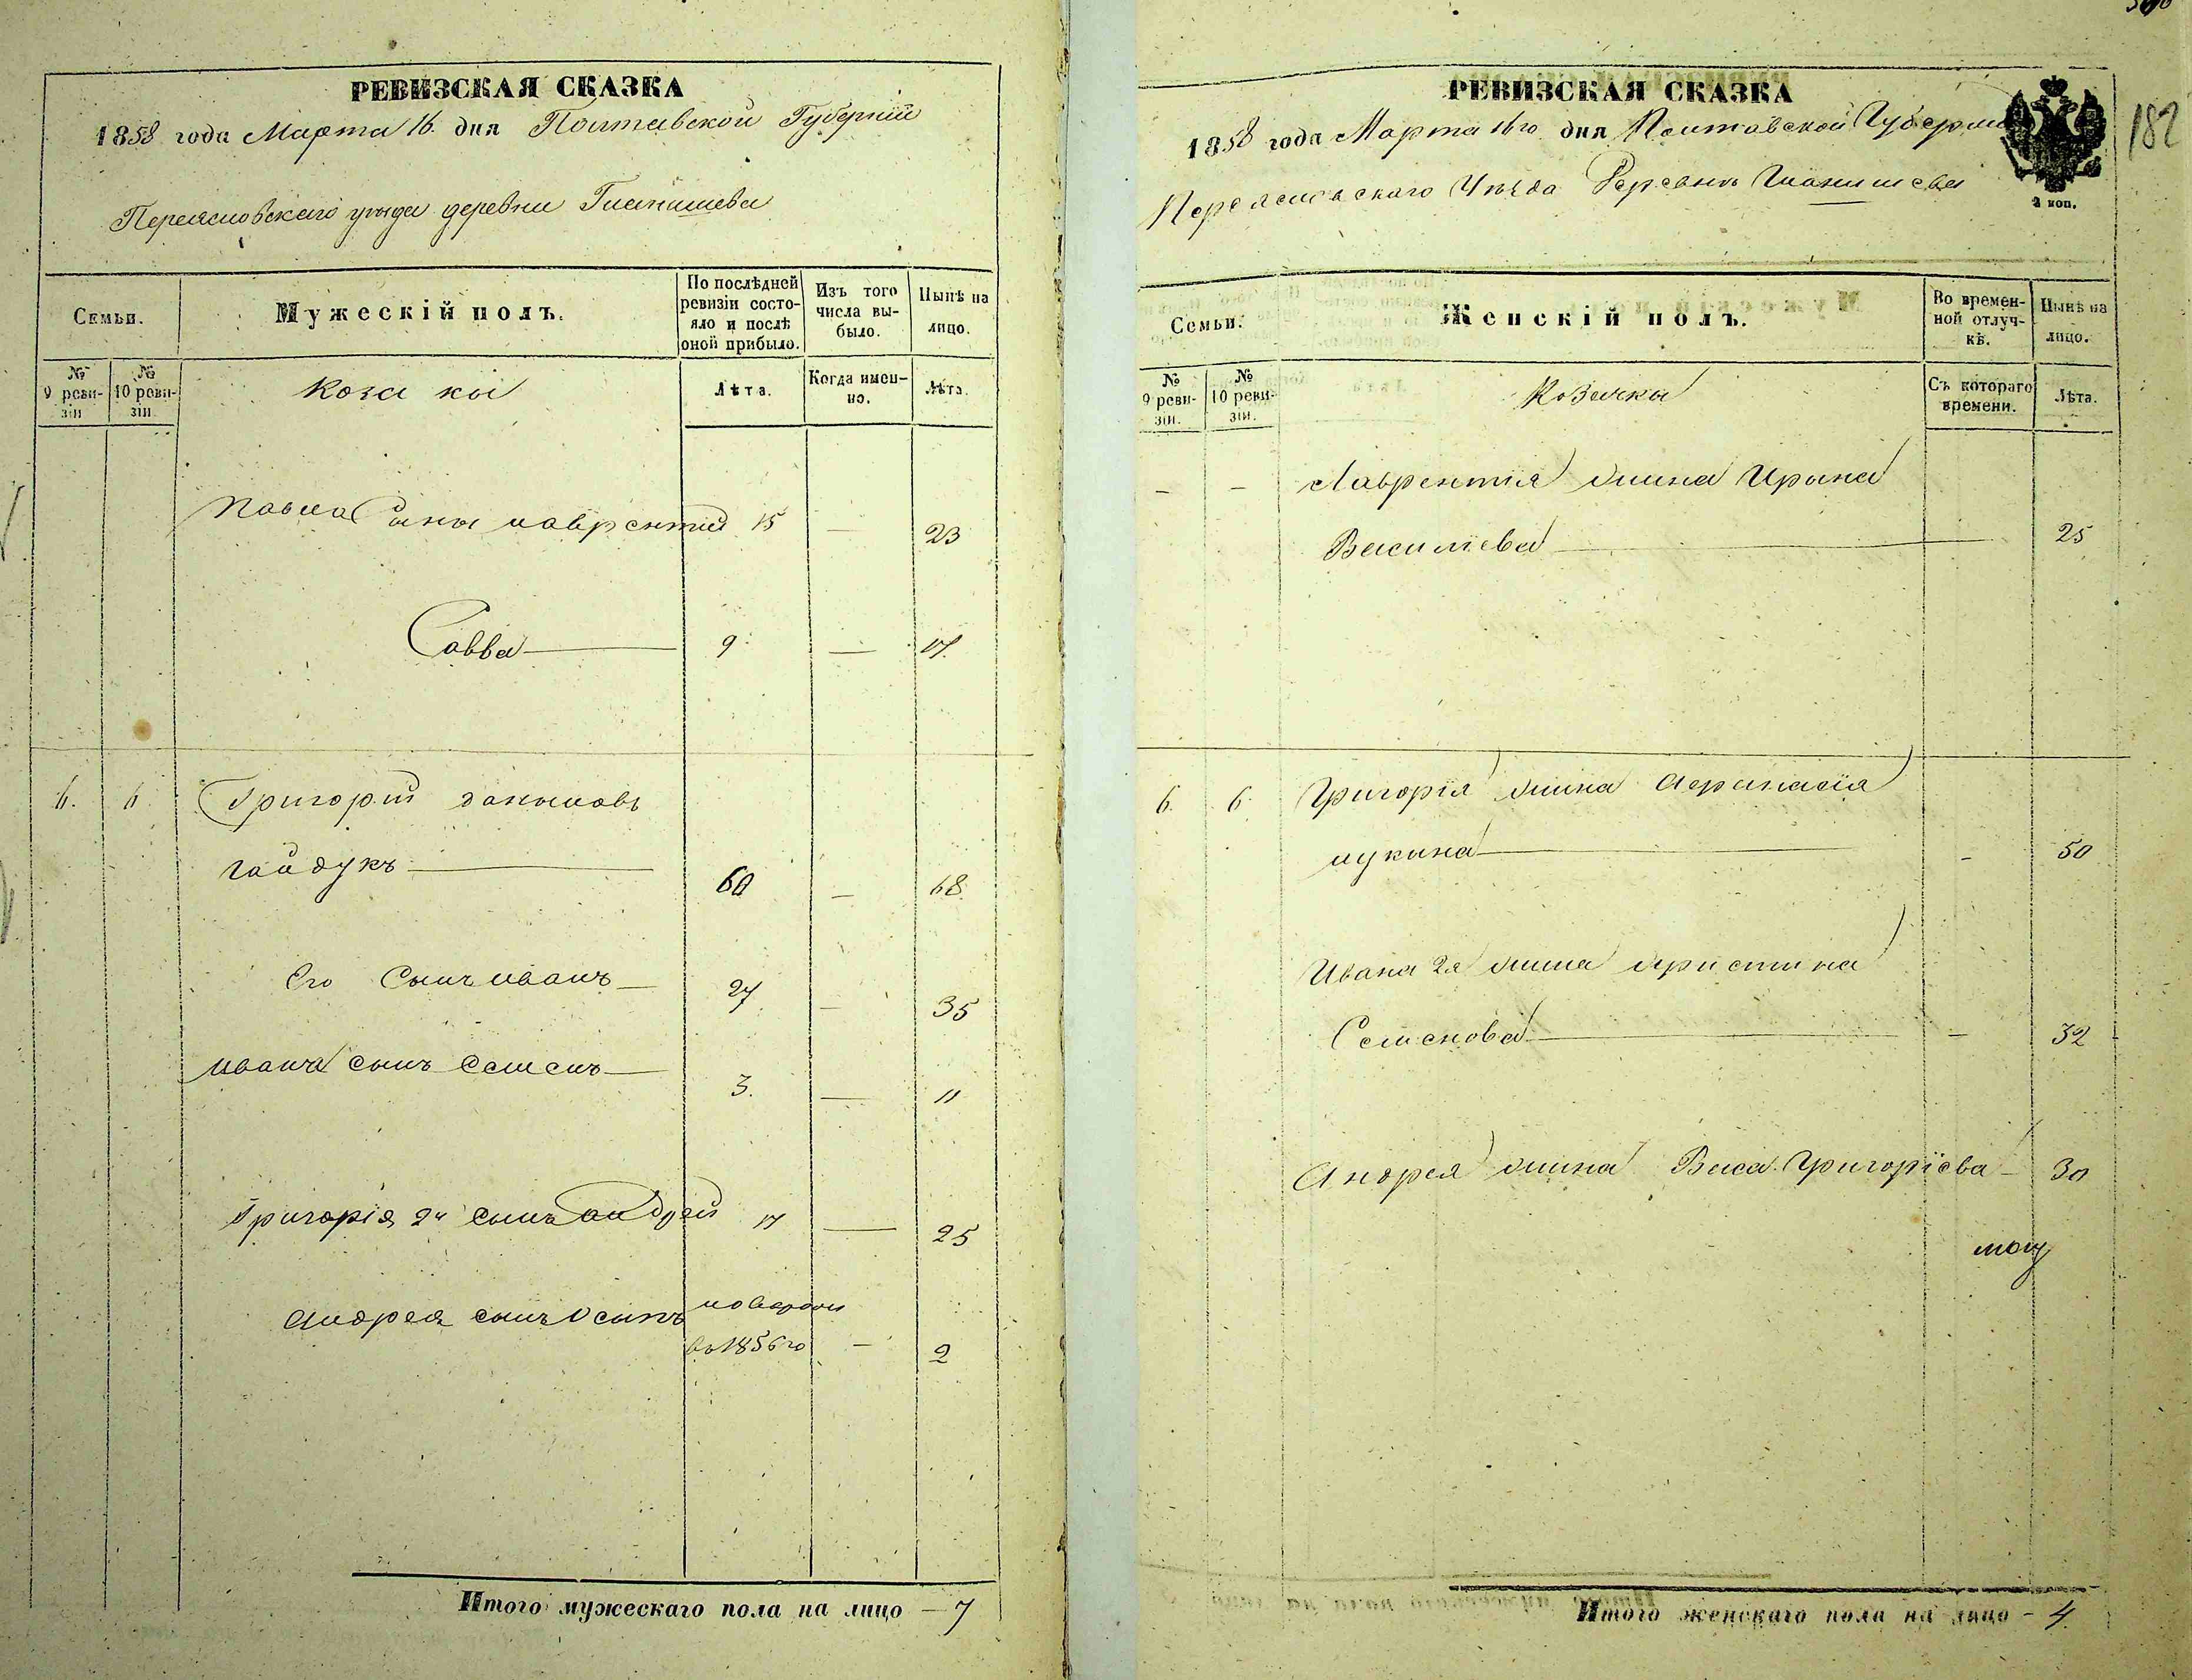 РЕВИЗСКАЯ СКАЗКА
1858 года Марта 16. дня Полтавской Губернии
Переясловскаго уезда деревни
Семьи.
Мужескій полъ.
По послѣдней ревизіи состояло и послѣ оной прибыло.
Изъ того числа выбыло.
Нынѣ на лицо.
№ 9 ревизіи
№ 10 ревизіи
Козаки
Лѣта.
Когда именно.
Лѣта.
Павла Сыны лаврентий 15 — 23
Савва — 9 — 17.
6. 6 Григорий даниловъ
гайдукъ — 60 — 68.
Его Сынъ иванъ — 27 — 35
ивана сынъ Семенъ — 3. — 11
Григорія 2й сынъ андрей 17 — 25
андрея сынъ Осипъ
въ 1856го — 2
Итого мужескаго пола на лицо — 7
182
РЕВИЗСКАЯ СКАЗКА
1858 года Марта 16го дня Полтавской Губернии
Переяславскаго Уѣзда Деревнѣ
2 коп.
Семьи.
Женскій полъ.
Во временной отлучкѣ.
Нынѣ на лицо.
№ 9 ревизіи.
№ 10 ревизіи.
Козачки
Съ котораго времени.
Лѣта.
— — Лаврентія жина Ирина
Василіева — 25
6. 6. Григорія жина Афанасія
лукина — — 50
Ивана 2я жина христина
Семенова — — 32
Андрея жина Васа Григоріева — 30
Итого женскаго пола на лицо — 4.